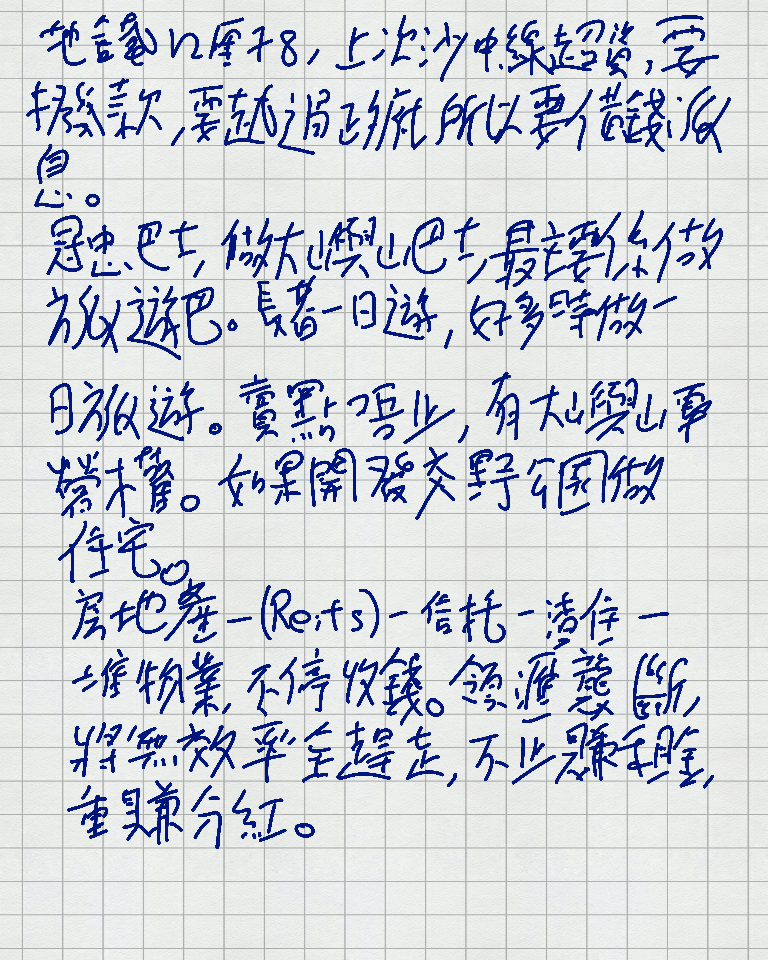 地鐵12厘78,上次沙中線超資,要
撥款,要越過政府所以要借錢派
息。
冠忠巴士,做大嶼山巴士,最主要係做
旅遊巴。長者一日遊,好多時做一
日旅遊。賣點唔止,有大嶼山車
營權。如果開發交野公園做
住宅。
房地產-(Reits)-信托-渣住一
堆物業,不停收錢。領匯壟斷,
將無效率全趕走,不止賺租金,
重賺分紅。